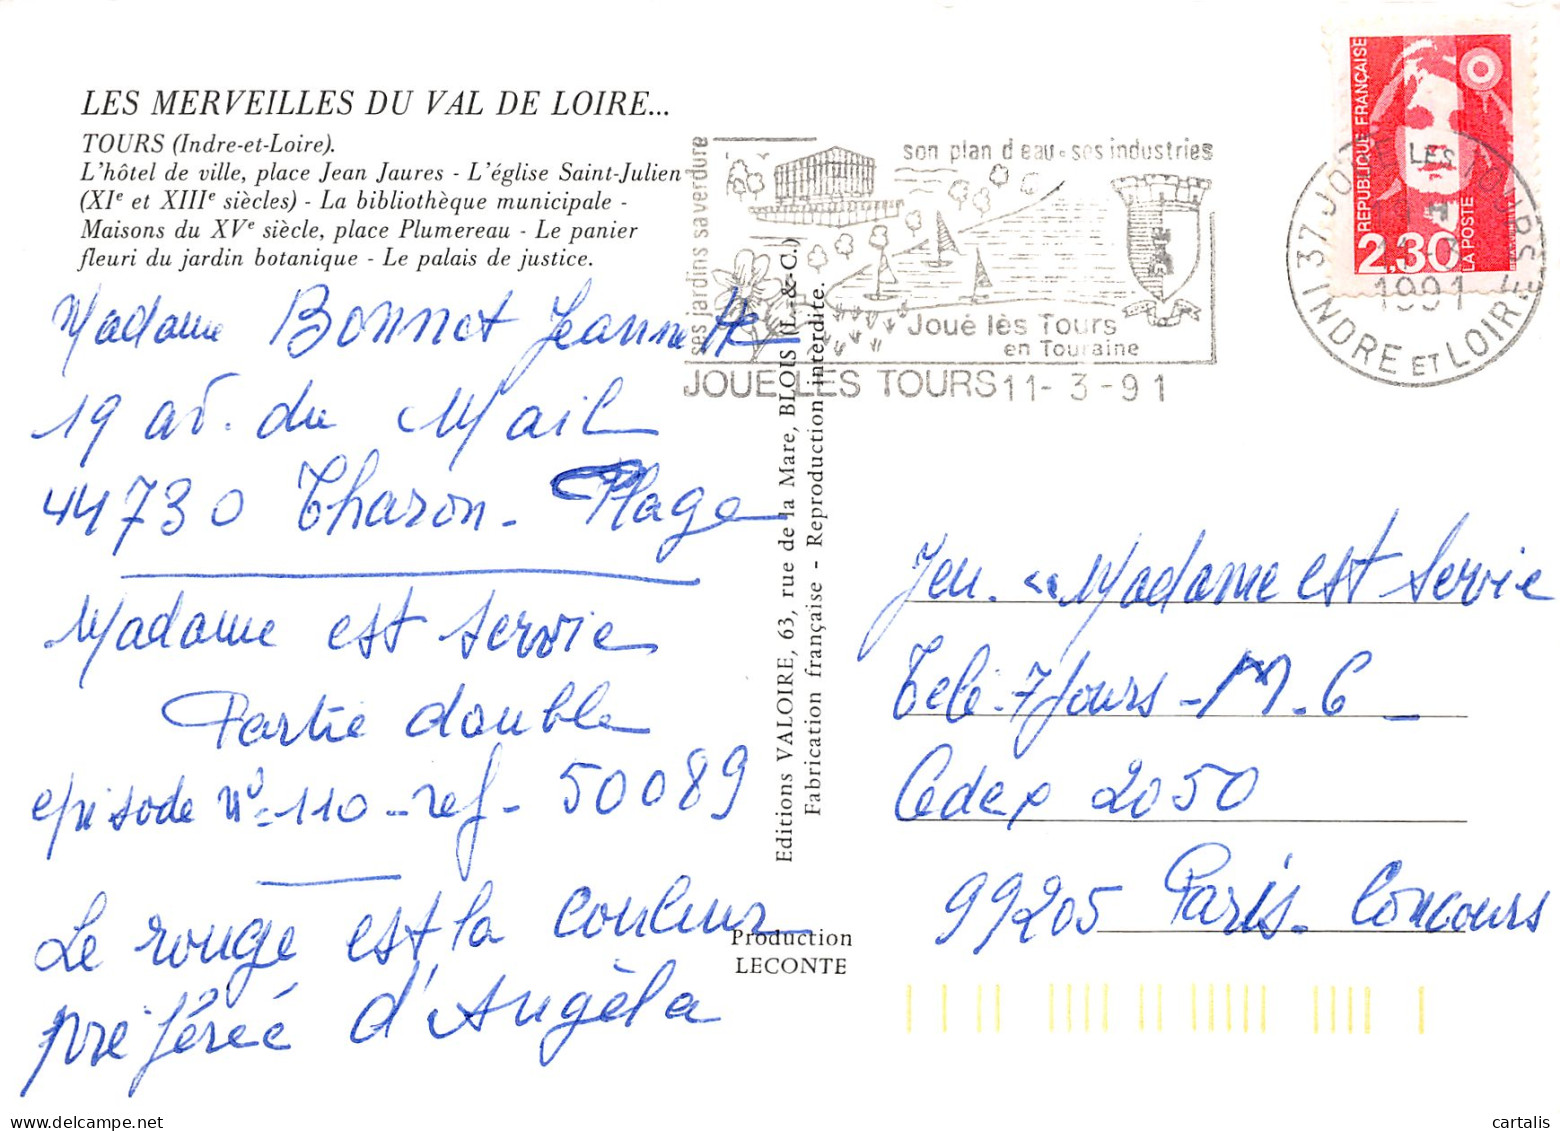 LES MERVEILLES DU VAL DE LOIRE...
TOURS (Indre-et-Loire).
L'hôtel de ville, place Jean Jaures - L'église Saint-Julien
(XIe et XIIIe siècles) - La bibliothèque municipale -
Maisons du XVe siècle, place Plumereau - Le panier
fleuri du jardin botanique - Le palais de justice.
Madame Bonnet Jeanne
19 av. du Mail
44730 Tharon-Plage
Madame est servie
Partie double
episode n° 110 - ref - 50089
Le rouge est la couleur
préférée d'Angèla
ses jardins sa verdure
son plan d'eau - ses industries
Joué lès Tours
en Touraine
JOUE LES TOURS 11-3-91
Editions VALOIRE, 63, rue de la Mare, BLOIS (L.-&-C.)
Fabrication française - Reproduction interdite.
Production
LECONTE
REPUBLIQUE FRANÇAISE
2,30
LA POSTE
37 JOUE LES TOURS
1991
INDRE ET LOIRE
Jeu. "Madame est servie
Télé-7 Jours - M. 6 -
Cedex 2050
99205 Paris-Concours
cartalis